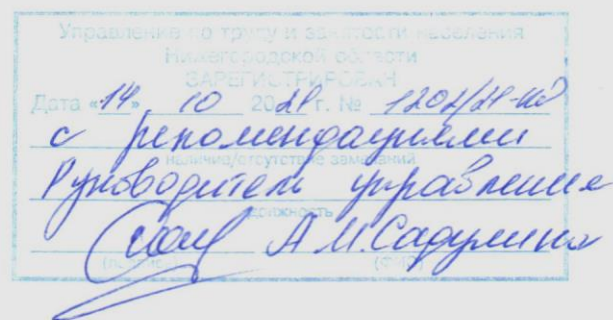 Управление по труду и занятости населения
Нижегородской области
ЗАРЕГИСТРИРОВАН
Дата «14» 10 2021 г. № 1202/21-КД
с рекомендациями
наличие/отсутствие замечаний
Руководитель управления
должность
А.М. Садулина
(ФИО)